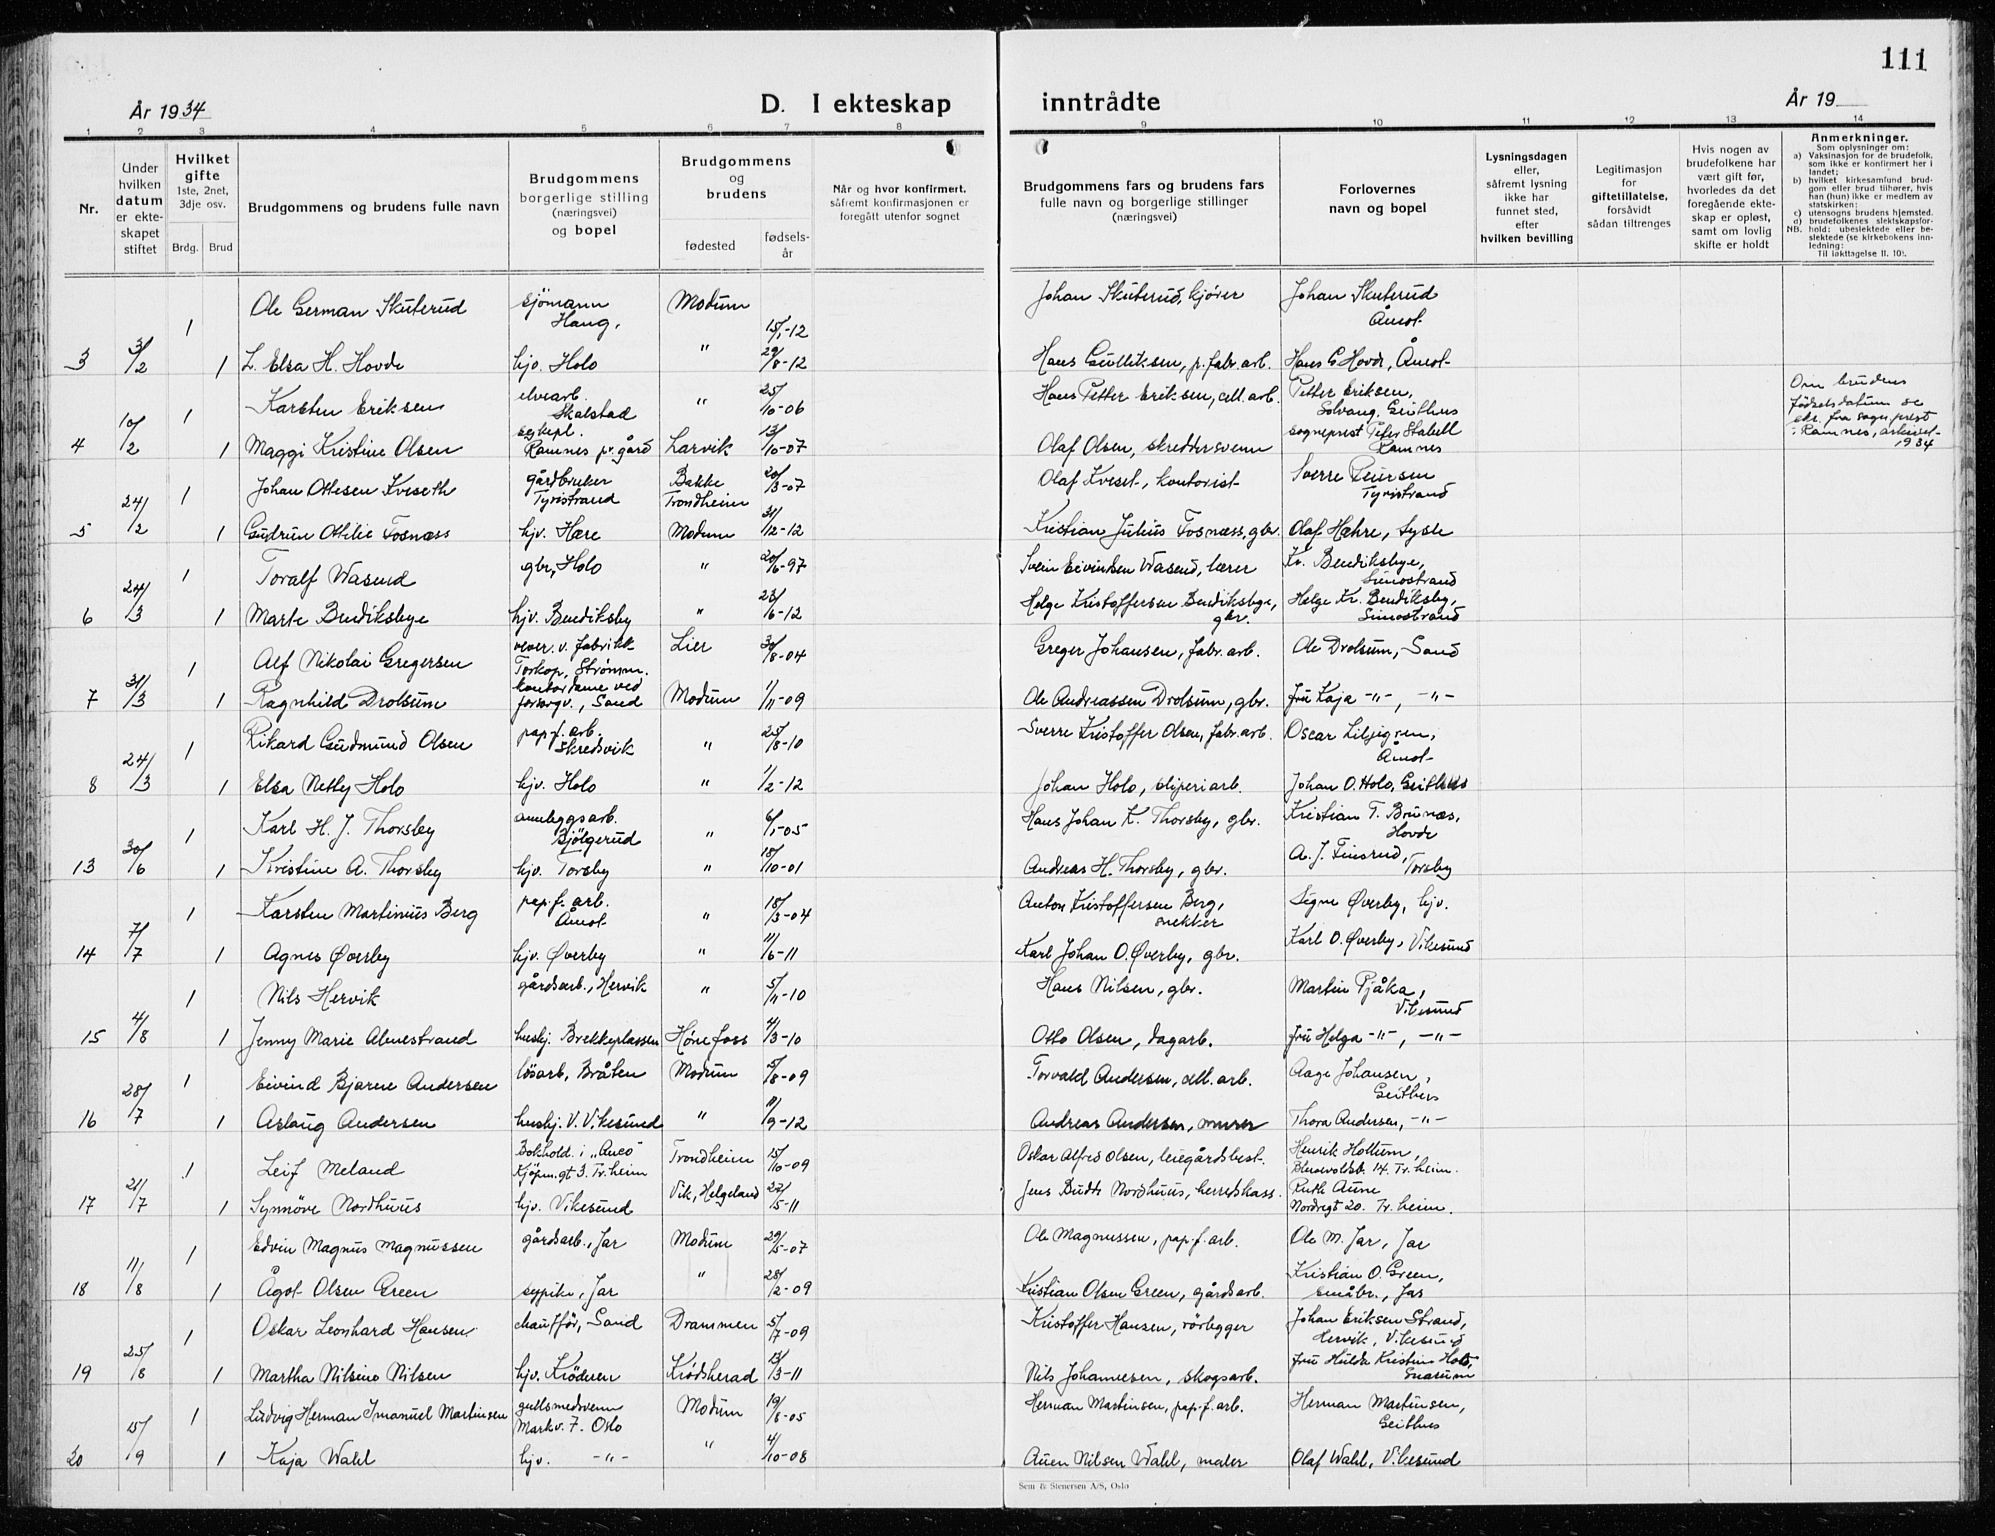 111
År 1934
D. I ekteskap inntrådte
År 19
1 2 3 4 5 6 7 8 9 10 11 12 13 14
Nr.
Under hvilken datum er ekteskapet stiftet
Hvilket gifte
1ste, 2net, 3dje osv.
Brdg. Brud
Brudgommens og brudens fulle navn
Brudgommens borgerlige stilling (næringsvei) og bopel
Brudgommens og brudens
fødested
fødselsår
Når og hvor konfirmert, såfremt konfirmasjonen er foregått utenfor sognet
Brudgommens fars og brudens fars fulle navn og borgerlige stillinger (næringsvei)
Forlovernes navn og bopel
Lysningsdagen eller, såfremt lysning ikke har funnet sted, efter hvilken bevilling
Legitimasjon for giftetillatelse, forsåvidt sådan tiltrenges
Hvis nogen av brudefolkene har vært gift før, hvorledes da det foregående ekteskap er opløst, samt om lovlig skifte er holdt
Anmerkninger.
Som oplysninger om:
a) Vaksinasjon for de brudefolk, som ikke er konfirmert her i landet;
b) hvilket kirkesamfund brudgom eller brud tilhører, hvis han (hun) ikke er medlem av statskirken;
c) utensogns brudens hjemsted.
d) brudefolkenes slektskapsforhold: ubeslektede eller beslektede (se kirkebokens innledning:
NB. Til iakttagelse II. 10).
1 Ole German Skuterud sjömann Haug, Modum 15/1-12 Johan Skuterud, kjører Johan Skuterud Åmot
3 3/2 1 L. Elsa H. Hovde hjv. Holo " 29/8-12 Hans Gulliksen, p. fabr. arb. Hans G Hovde, Åmot
1 Karsten Eriksen elvearb. Skalstad " 25/10-06 Hans Petter Eriksen, cell. arb. Petter Eriksen, Solvang, Geithus
4 10/2 1 Maggi Kristine Olsen Ramnes pr. gård Larvik 13/10-07 Olaf Olsen, skreddersvenn sogneprest Peter Stabell Ramnes
Om brudens fødselsdatum se skr. fra sogneprest i Ramnes, arkivet 1934
1 Johan Ottesen Kveseth gårdbruker Tyristrand Bakke Trondheim 20/3-07 Olaf Kveset, kontorist Sverre Tyristrand
5 24/2 1 Gudrun Otilie Fosnæss hjv. Hære Modum 31/12-12 Kristian Julius Fosnæss, gbr. Olaf Hæhre, Sysle
1 Toralf Wasend gbr, Holo " 20/6-97 Svein Eivindsen Wasend, lærer Kr. Bendiksbye, Simostrand
6 24/3 1 Marte Bendiksbye hjv. Bendiksby " 23/6-12 Helge Kristoffersen Bendiksbye, gbr. Helge Kr. Bendiksby, Simostrand
1 Alf Nikolai Gregersen vever. v. fabrikk Torkop, Strømm. Lier 30/8-04 Greger Johansen, fabr. arb. Ole Drolsum, Sand
7 31/3 1 Ragnhild Drolsum kontordame ved forsorgv., Sand Modum 1/11-09 Ole Andreassen Drolsum, gbr. fru Kaja -"-, -"-
1 Rikard Gudmund Olsen pap. f. arb. Skredsvik " 25/8-10 Sverre Kristoffer Olsen, fabr. arb. Oscar Liljigren, Åmot
8 24/3 1 Elsa Netley Holo hjv. Holo " 1/2-12 Johan Holo, sliperiarb. Johan O. Holo, Geithus
1 Karl H. J. Thorsby anleggsarb. Bjölgerud " 6/1-05 Hans Johan K. Thorsby, gbr. Kristian T. Brunæs, Hovde
13 30/6 1 Kristine A. Thorsby hjv. Torsby " 18/10-01 Andreas H. Thorsby, gbr. A. J. Finsrud, Torsby
1 Karsten Martinius Berg pap. f. arb. Åmot " 18/3-04 Anton Kristoffersen Berg, snekker Signe Øverby, hjv.
14 7/7 1 Agnes Øverby hjv. Øverby " 11/6-11 Karl Johan O. Øverby, gbr. Karl O. Øverby, Vikesund
1 Nils Hervik gårdsarb., Hervik " 5/11-10 Hans Nilsen, gbr. Martin Pjåka, Vikesund
15 4/8 1 Jenny Marie Almestrand hushj. Brekkeplassen Hönefoss 4/3-10 Otto Olsen, dagarb. fru Helga -"-, -"-
1 Eivind Bjarne Andersen lösarb, Bråten Modum 5/8-09 Torvald Andersen, cell. arb. Aage Johansen, Geithus
16 28/7 1 Aslaug Andersen hushj. V. Vikesund " 11/9-12 Andreas Andersen, murer Thora Andersen, -"-
1 Leif Meland Bokhold. i Kjöpm. gt 3. Tr.heim Trondheim 15/10-09 Oskar Alfred Olsen, leiegårdsbest. Henrik Hollum, 14. Tr. heim.
17 21/7 1 Synnöve Nordhuus hjv. Vikesund Vik, Helgeland 22/5-11 Jens Budde Nordhuus, herredskass. Ruth Aune Nordregt 20. Tr. heim.
1 Edvin Magnus Magnussen gårdsarb., Jar Modum 29/5-07 Ole Magnussen, pap. f. arb. Ole M. Jar, Jar
18 11/8 1 Ågot Olsen Green sypike, Jar " 28/2-09 Kristian Olsen Green, gårdsarb. Kristian O. Green, småbr., Jar
1 Oskar Leonhard Hansen chaufför, Sand Drammen 5/7-09 Kristoffer Hansen, rörlegger Johan Eriksen Strand, Hervik, Vikesund
19 25/8 1 Martha Nilsine Nilsen hjv. Kröderen Krödsherad 13/3-11 Nils Johannesen, skogsarb. fru Hulda Kristine Holt, Snarum
1 Ludvig Herman Imanuel Martinsen gullsmedsvenn Markv. 7. Oslo Modum 19/8-05 Herman Martinsen, pap. f. arb. Herman Martinsen, Geithus
20 15/9 1 Kaja Wahl hjv. -"- " 4/10-08 Auen Nilsen Wahl, maler Olaf Wahl, Vikesund
Sem & Stenersen A/S, Oslo